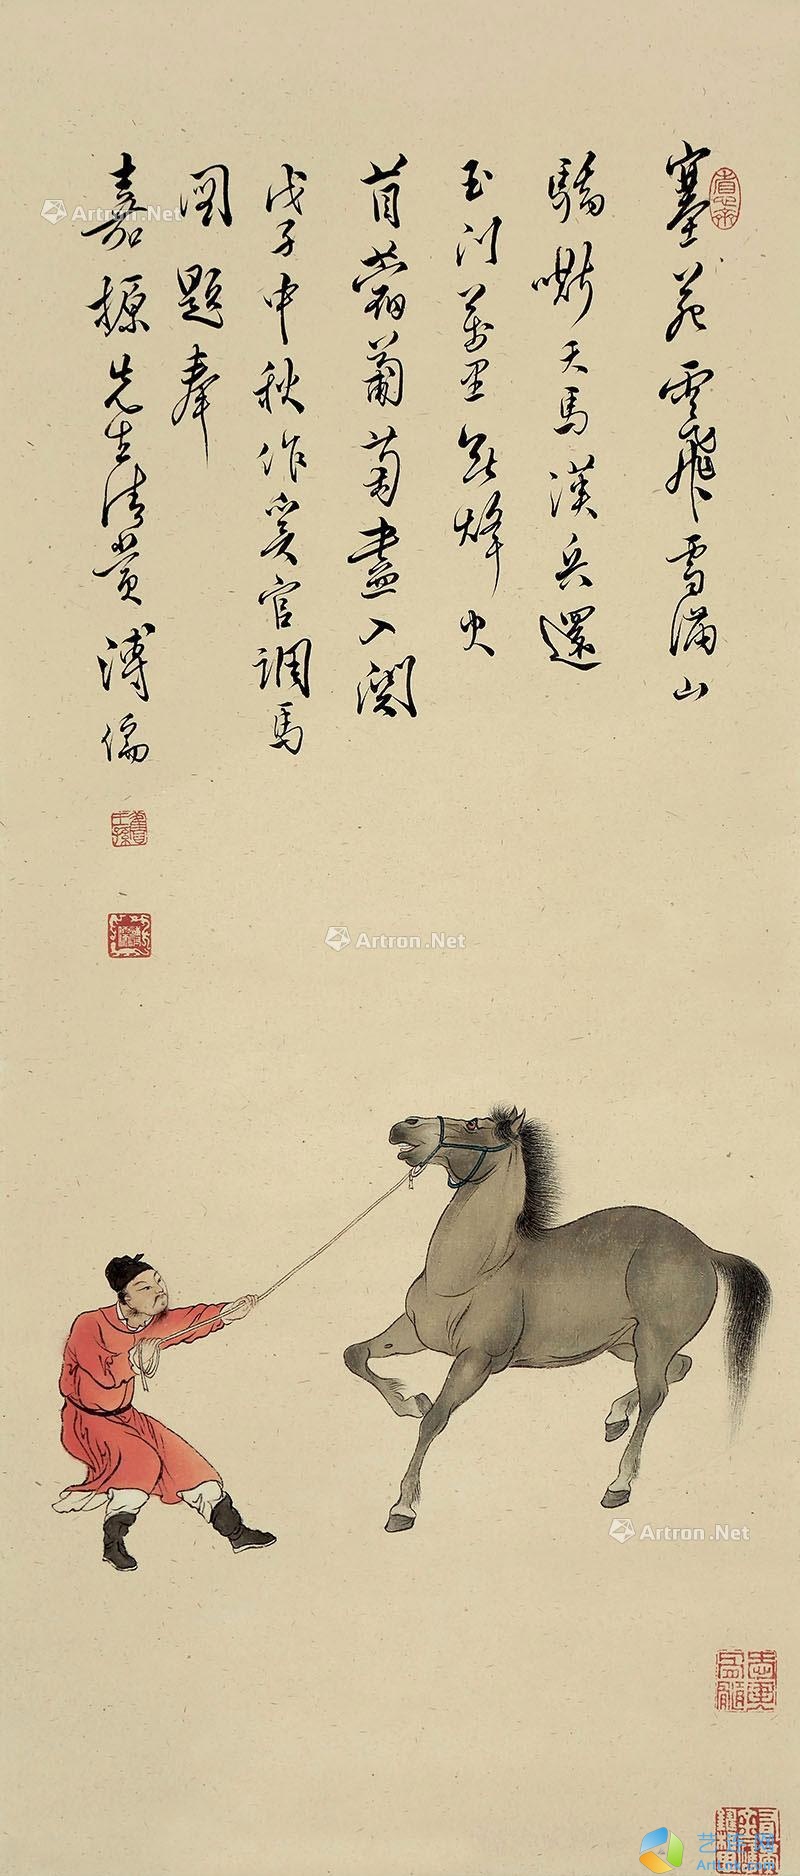 塞苑雲飛雪滿山
驕嘶天馬漢兵還
玉門萬里無烽火
苜蓿葡萄盡入關
戊子中秋作奚官調馬
圖題奉
嘉先生清賞溥儒
舊王孫
Artron.Net
Artron.Net
Artron.Net